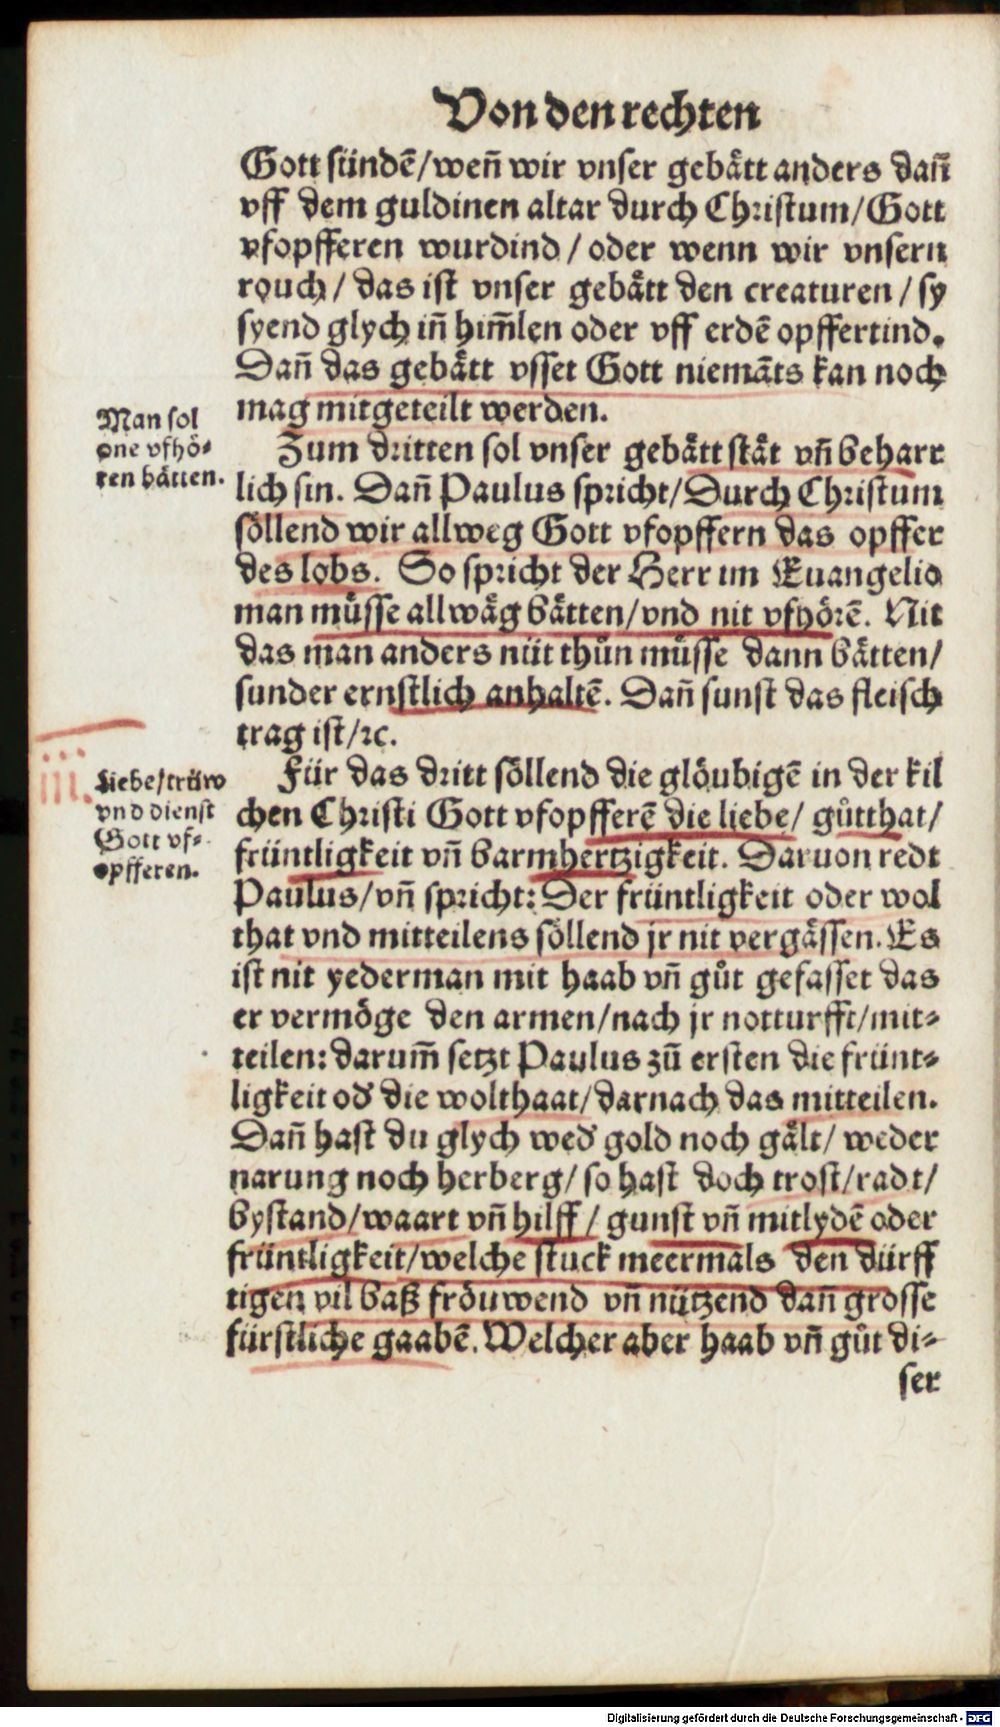 Von den rechten
Gott sündē/weñ wir vnser gebått anders dañ
vff dem guldinen altar durch Christum/Gott
vfopfferen wurdind/oder wenn wir vnsern
rouch/das ist vnser gebått den creaturen/sy
syend glych iñ him̄len oder vff erdē opffertind.
Dañ das gebått vsset Gott niemāts kan noch
mag mitgeteilt werden.
Man sol
one vfhö⸗
ren båtten.
Zum dritten sol vnser gebått ståt vñ beharr
lich sin. Dañ Paulus spricht/Durch Christum
söllend wir allweg Gott vfopffern das opffer
des lobs. So spricht der Herr im Euangelio
man müsse allwåg båtten/vnd nit vfhörē. Nit
das man anders nüt thůn müsse dann båtten/
sunder ernstlich anhaltē. Dañ sunst das fleisch
trag ist/ꝛc.
iii.
Liebe/trüw
vnd dienst
Gott vf⸗
opfferen.
Für das dritt söllend die glöubigē in der kil
chen Christi Gott vfopfferē die liebe/ gůtthat/
früntligkeit vñ barmhertzigkeit. Daruon redt
Paulus/vñ spricht: Der früntligkeit oder wol
that vnd mitteilens söllend jr nit vergåssen. Es
ist nit yederman mit haab vñ gůt gefasset das
er vermöge den armen/nach jr notturfft/mit⸗
teilen: darum̄ setzt Paulus zū ersten die frünt⸗
ligkeit od' die wolthaat/darnach das mitteilen.
Dañ hast du glych wed' gold noch gält/ weder
narung noch herberg/ so hast doch trost/radt/
bystand/waart vñ hilff/ gunst vñ mitlydē oder
früntligkeit/welche stuck meermals den dürff
tigen vil baß fröuwend vñ nützend dañ grosse
fürstliche gaabē. Welcher aber haab vñ gůt di⸗
ser
Digitalisierung gefördert durch die Deutsche Forschungsgemeinschaft - DFG